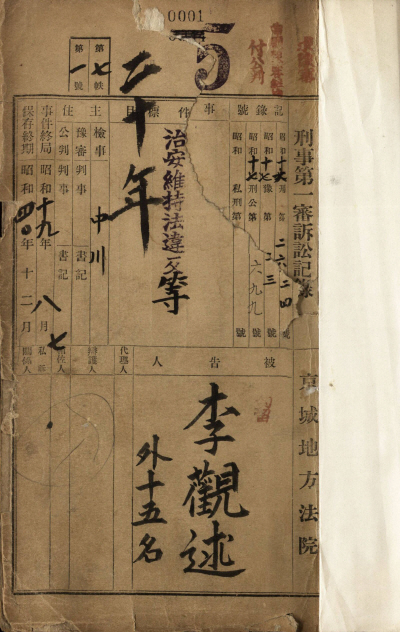 0001
5
付公判
第七帙
第一號
二十年
刑事第一審訴訟記錄
京城地方法院
記錄號
昭和十七年
昭和十七年豫第二三號
昭和十七年刑公第六九九號
昭和 私刑第 號
事件標目
治安維持法違反等
主檢事
中川
豫審判事 書記
任公判判事 書記
事件終局 昭和十九年八月七
保存終期 昭和四〇年十二月
被告人
李觀述
外十五名
代理人
辯護人
輔佐人
私訴
關係人